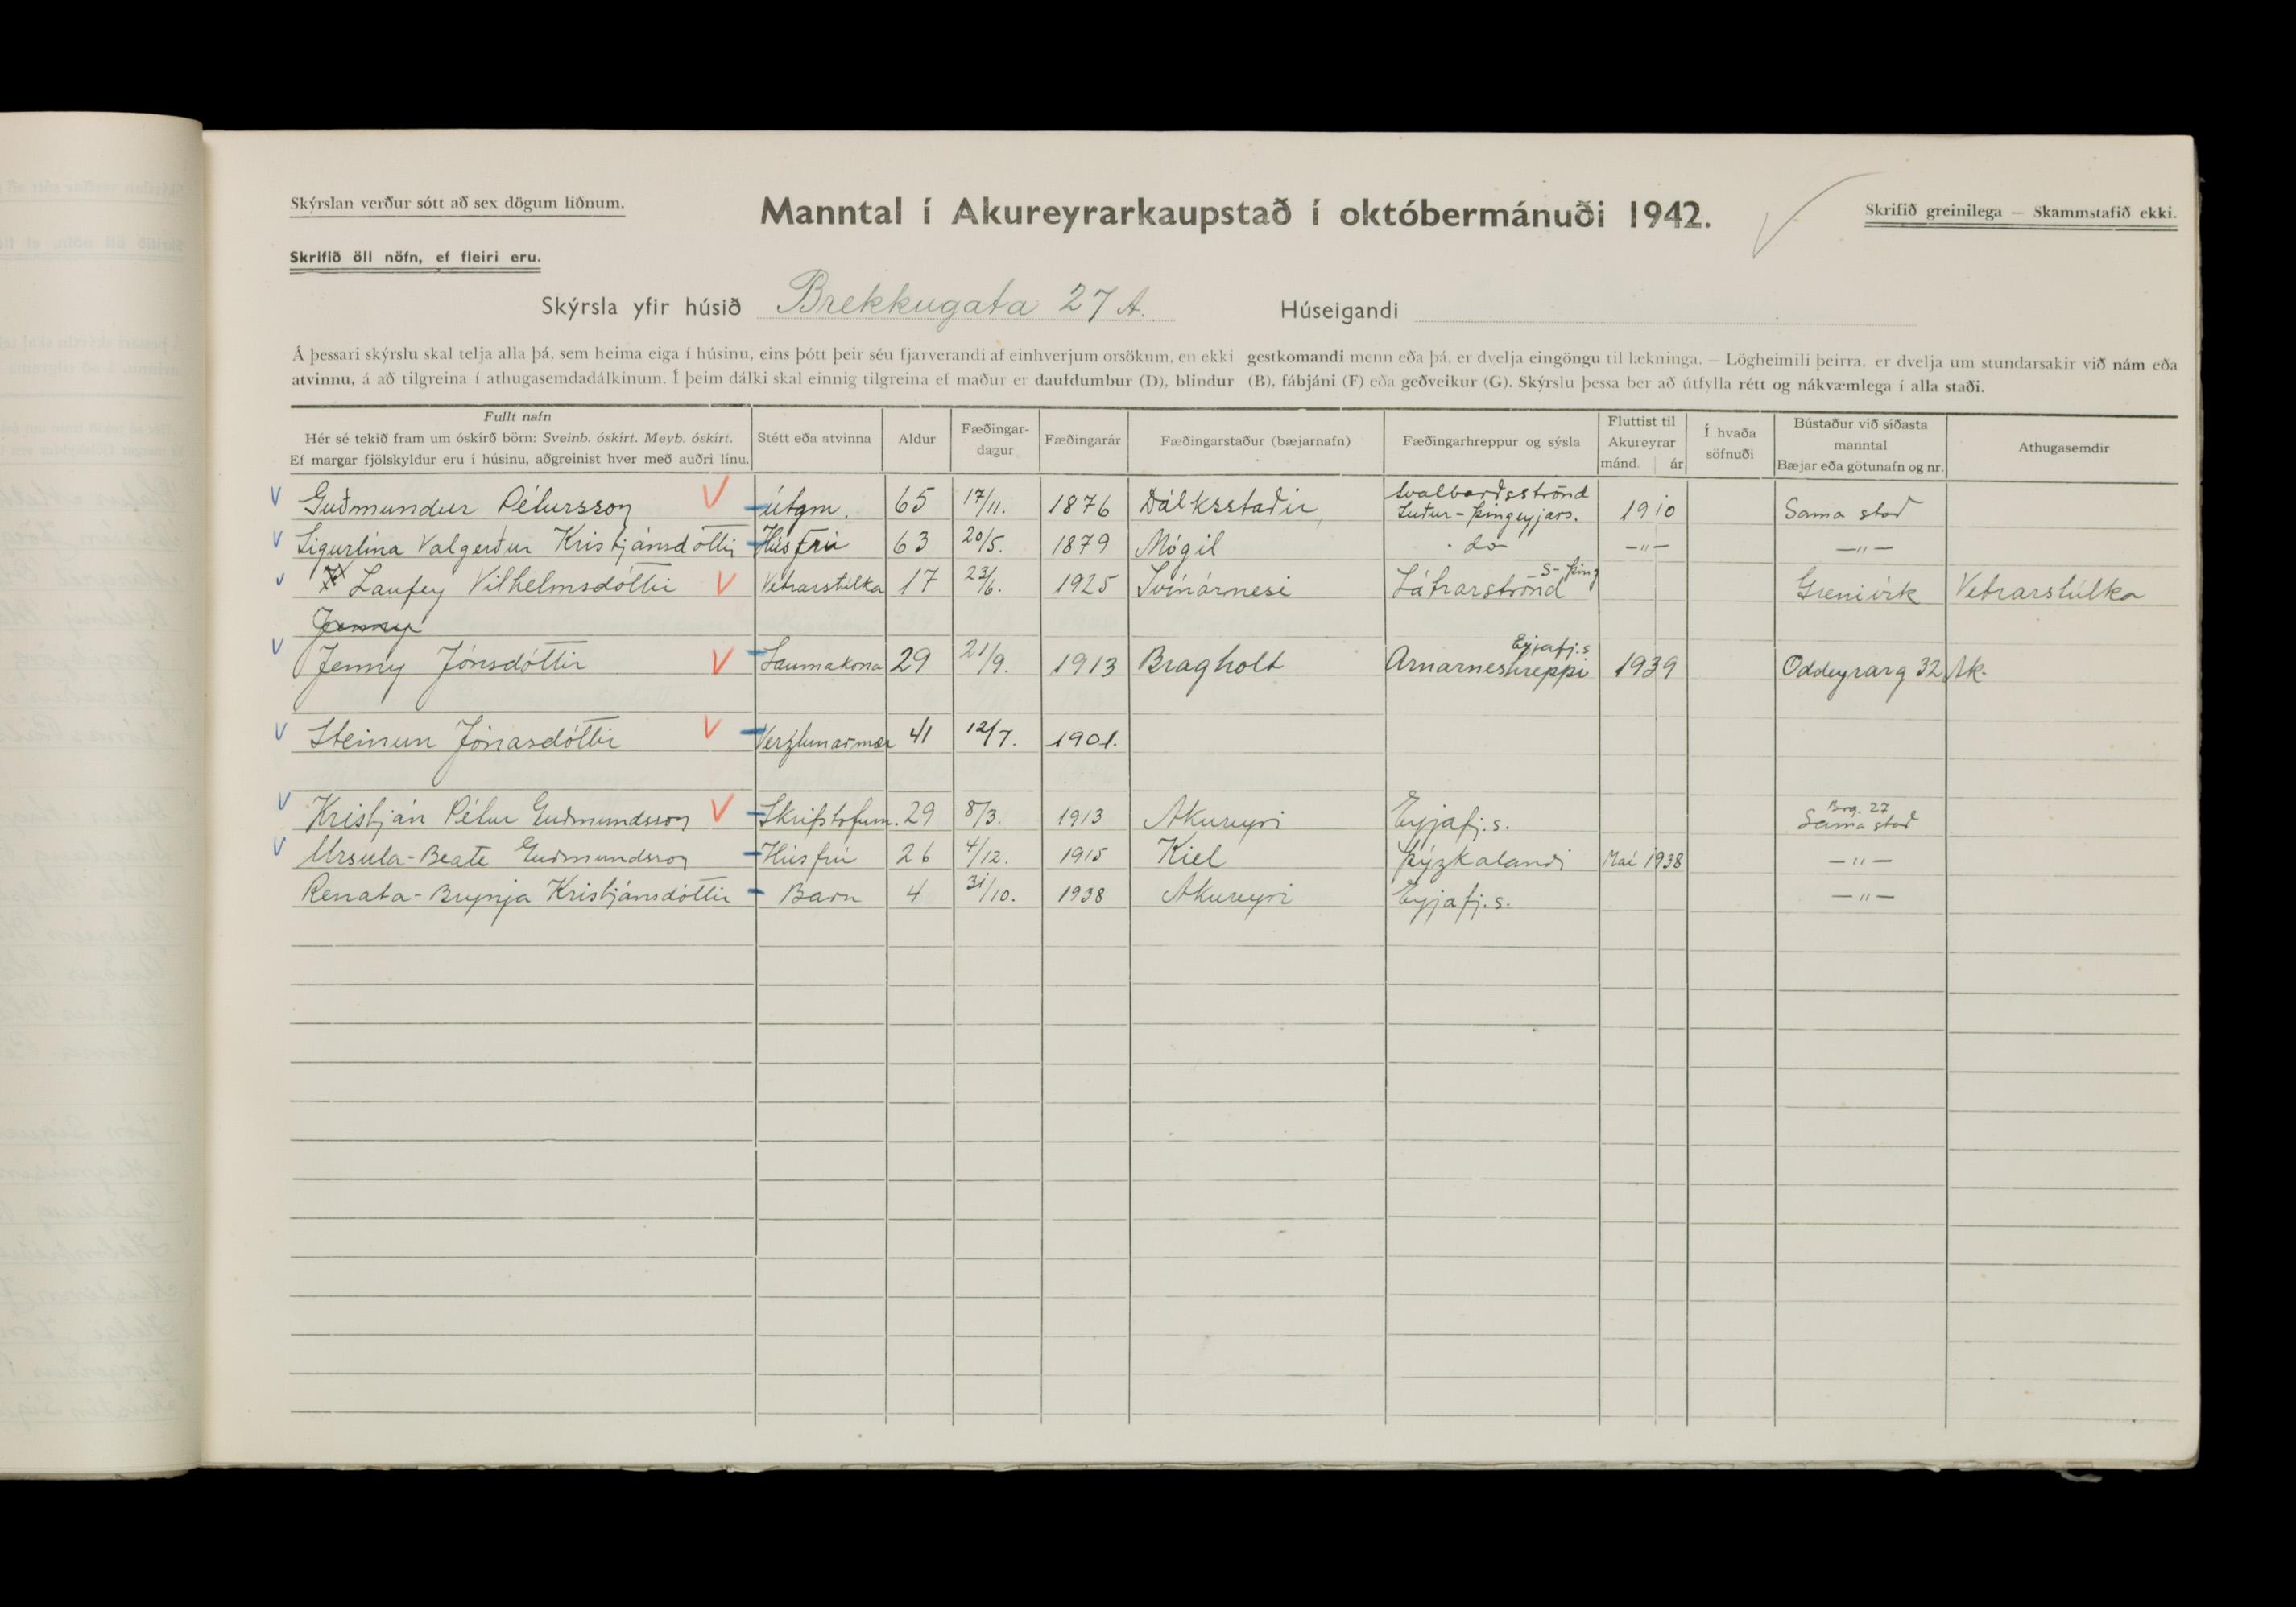 Skýrslan verður sótt að sex dögum liðnum.
Manntal í Akureyrarkaupstað í októbermánuði 1942.
Skrifið greinilega — Skammstafið ekki.
Skrifið öll nöfn, ef fleiri eru.
Skýrsla yfir húsið Brekkugata 27 A. Húseigandi
Á þessari skýrslu skal telja alla þá, sem heima eiga í húsinu, eins þótt þeir séu fjarverandi af einhverjum orsökum, en ekki gestkomandi menn eða þá, er dvelja eingöngu til lækninga. — Lögheimili þeirra, er dvelja um stundarsakir við nám eða
atvinnu, á að tilgreina í athugasemdadálkinum. Í þeim dálki skal einnig tilgreina ef maður er daufdumbur (D), blindur (B), fábjáni (F) eða geðveikur (G). Skýrslu þessa ber að útfylla rétt og nákvæmlega í alla staði.
Fullt nafn
Hér sé tekið fram um óskírð börn: Sveinb. óskírt. Meyb. óskírt.
Ef margar fjölskyldur eru í húsinu, aðgreinist hver með auðri línu.
Stétt eða atvinna
Aldur
Fæðingar-
dagur
Fæðingarár
Fæðingarstaður (bæjarnafn)
Fæðingarhreppur og sýsla
Fluttist til
Akureyrar
mánd. ár
Í hvaða
söfnuði
Bústaður við síðasta
manntal
Bæjar eða götunafn og nr.
Athugasemdir
Guðmundur Pétursson útgm. 65 17/11. 1876 Dálksstaðir Svalbarðsströnd Suður-Þingeyjars. 1910 Sama stað
Sigurlína Valgerður Kristjánsdóttir Húsfrú 63 20/5. 1879 Mógil do —"— —"—
Laufey Vilhelmsdóttir Vetrarstúlka 17 23/6. 1925 Svínárnesi Látrarströnd S-Þing Grenivík Vetrarstúlka
Jenny
Jenny Jónsdóttir Saumakona 29 21/9. 1913 Bragholt Arnarneshreppi Eyjafj.s 1939 Oddeyrarg 32 Ak.
Steinun Jónasdóttir Verzlunarmær 41 12/7. 1901.
Kristján Pétur Guðmundsson Skrifstofum. 29 8/3. 1913 Akureyri Eyjafj.s. Brg. 27 Sama stað
Ursula-Beate Guðmundsson Húsfrú 26 4/12. 1915 Kiel Þýzkalandi Maí 1938 —"—
Renata-Brynja Kristjánsdóttir Barn 4 31/10. 1938 Akureyri Eyjafj.s. —"—